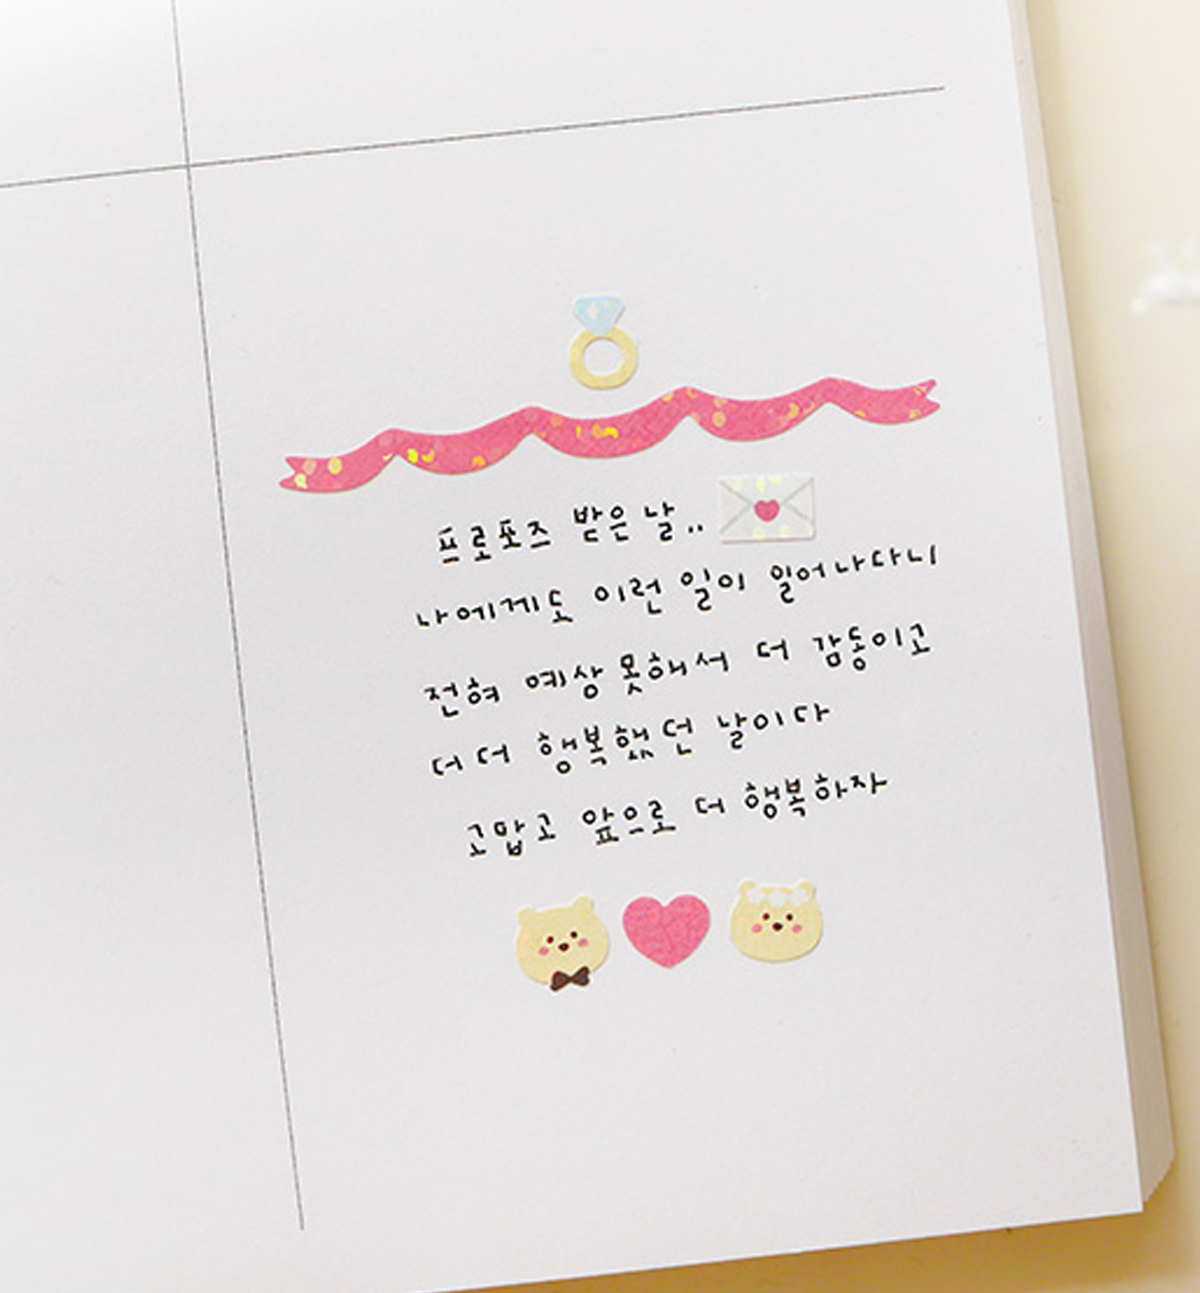 프로포즈 받은 날..
나에게도 이런 일이 일어나다니
전혀 예상 못해서 더 감동이고
더더 행복했던 날이다
고맙고 앞으로 더 행복하자